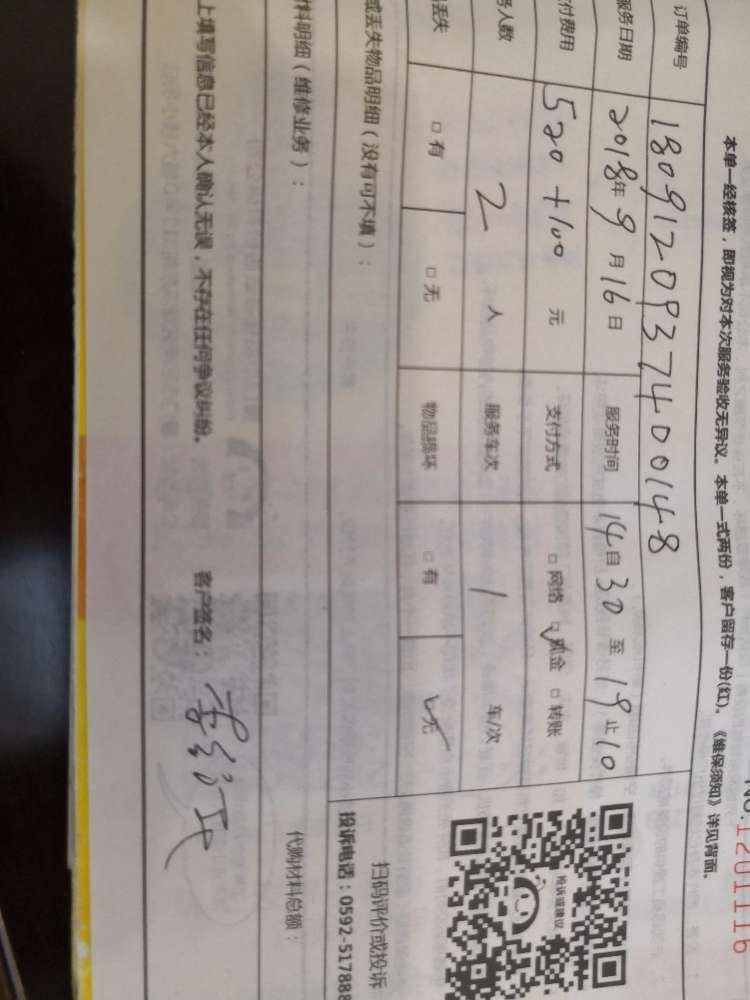 NO.1201116
本单一经核签，即视为对本次服务验收无异议。本单一式两份，客户留存一份(红)。《维保须知》详见背面。
订单编号 1809120937400148
服务日期 2018年9月16日 服务时间 14自30至19止10
付费用 520+100 元 支付方式 □网络 ☑现金 □转账
务人数 2 人 服务车次 1 车/次
丢失 □有 □无 物品损坏 □有 ☑无
或丢失物品明细（没有可不填）：
投诉或建议
扫码评价或投诉
投诉电话：0592-517888
料明细（维修业务）： 代购材料总额：
上填写信息已经本人确认无误，不存在任何争议纠纷。 客户签名：